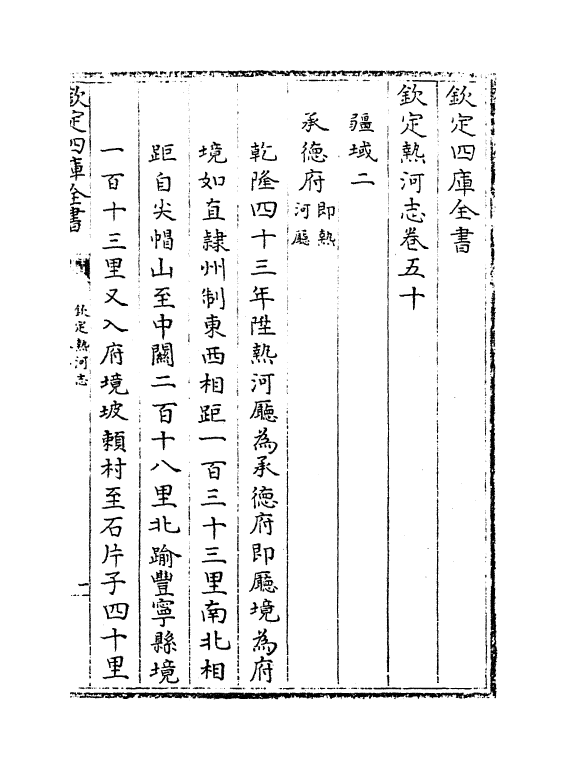 欽定四庫全書
欽定熱河志卷五十
疆域二
承德府即熱河廳
乾隆四十三年陞熱河廳為承德府即廳境為府
境如直隸州制東西相距一百三十三里南北相
距自尖帽山至中關二百十八里北踰豐寧縣境
一百十三里又入府境坡賴村至石片子四十里
欽定四庫全書
欽定熱河志
一